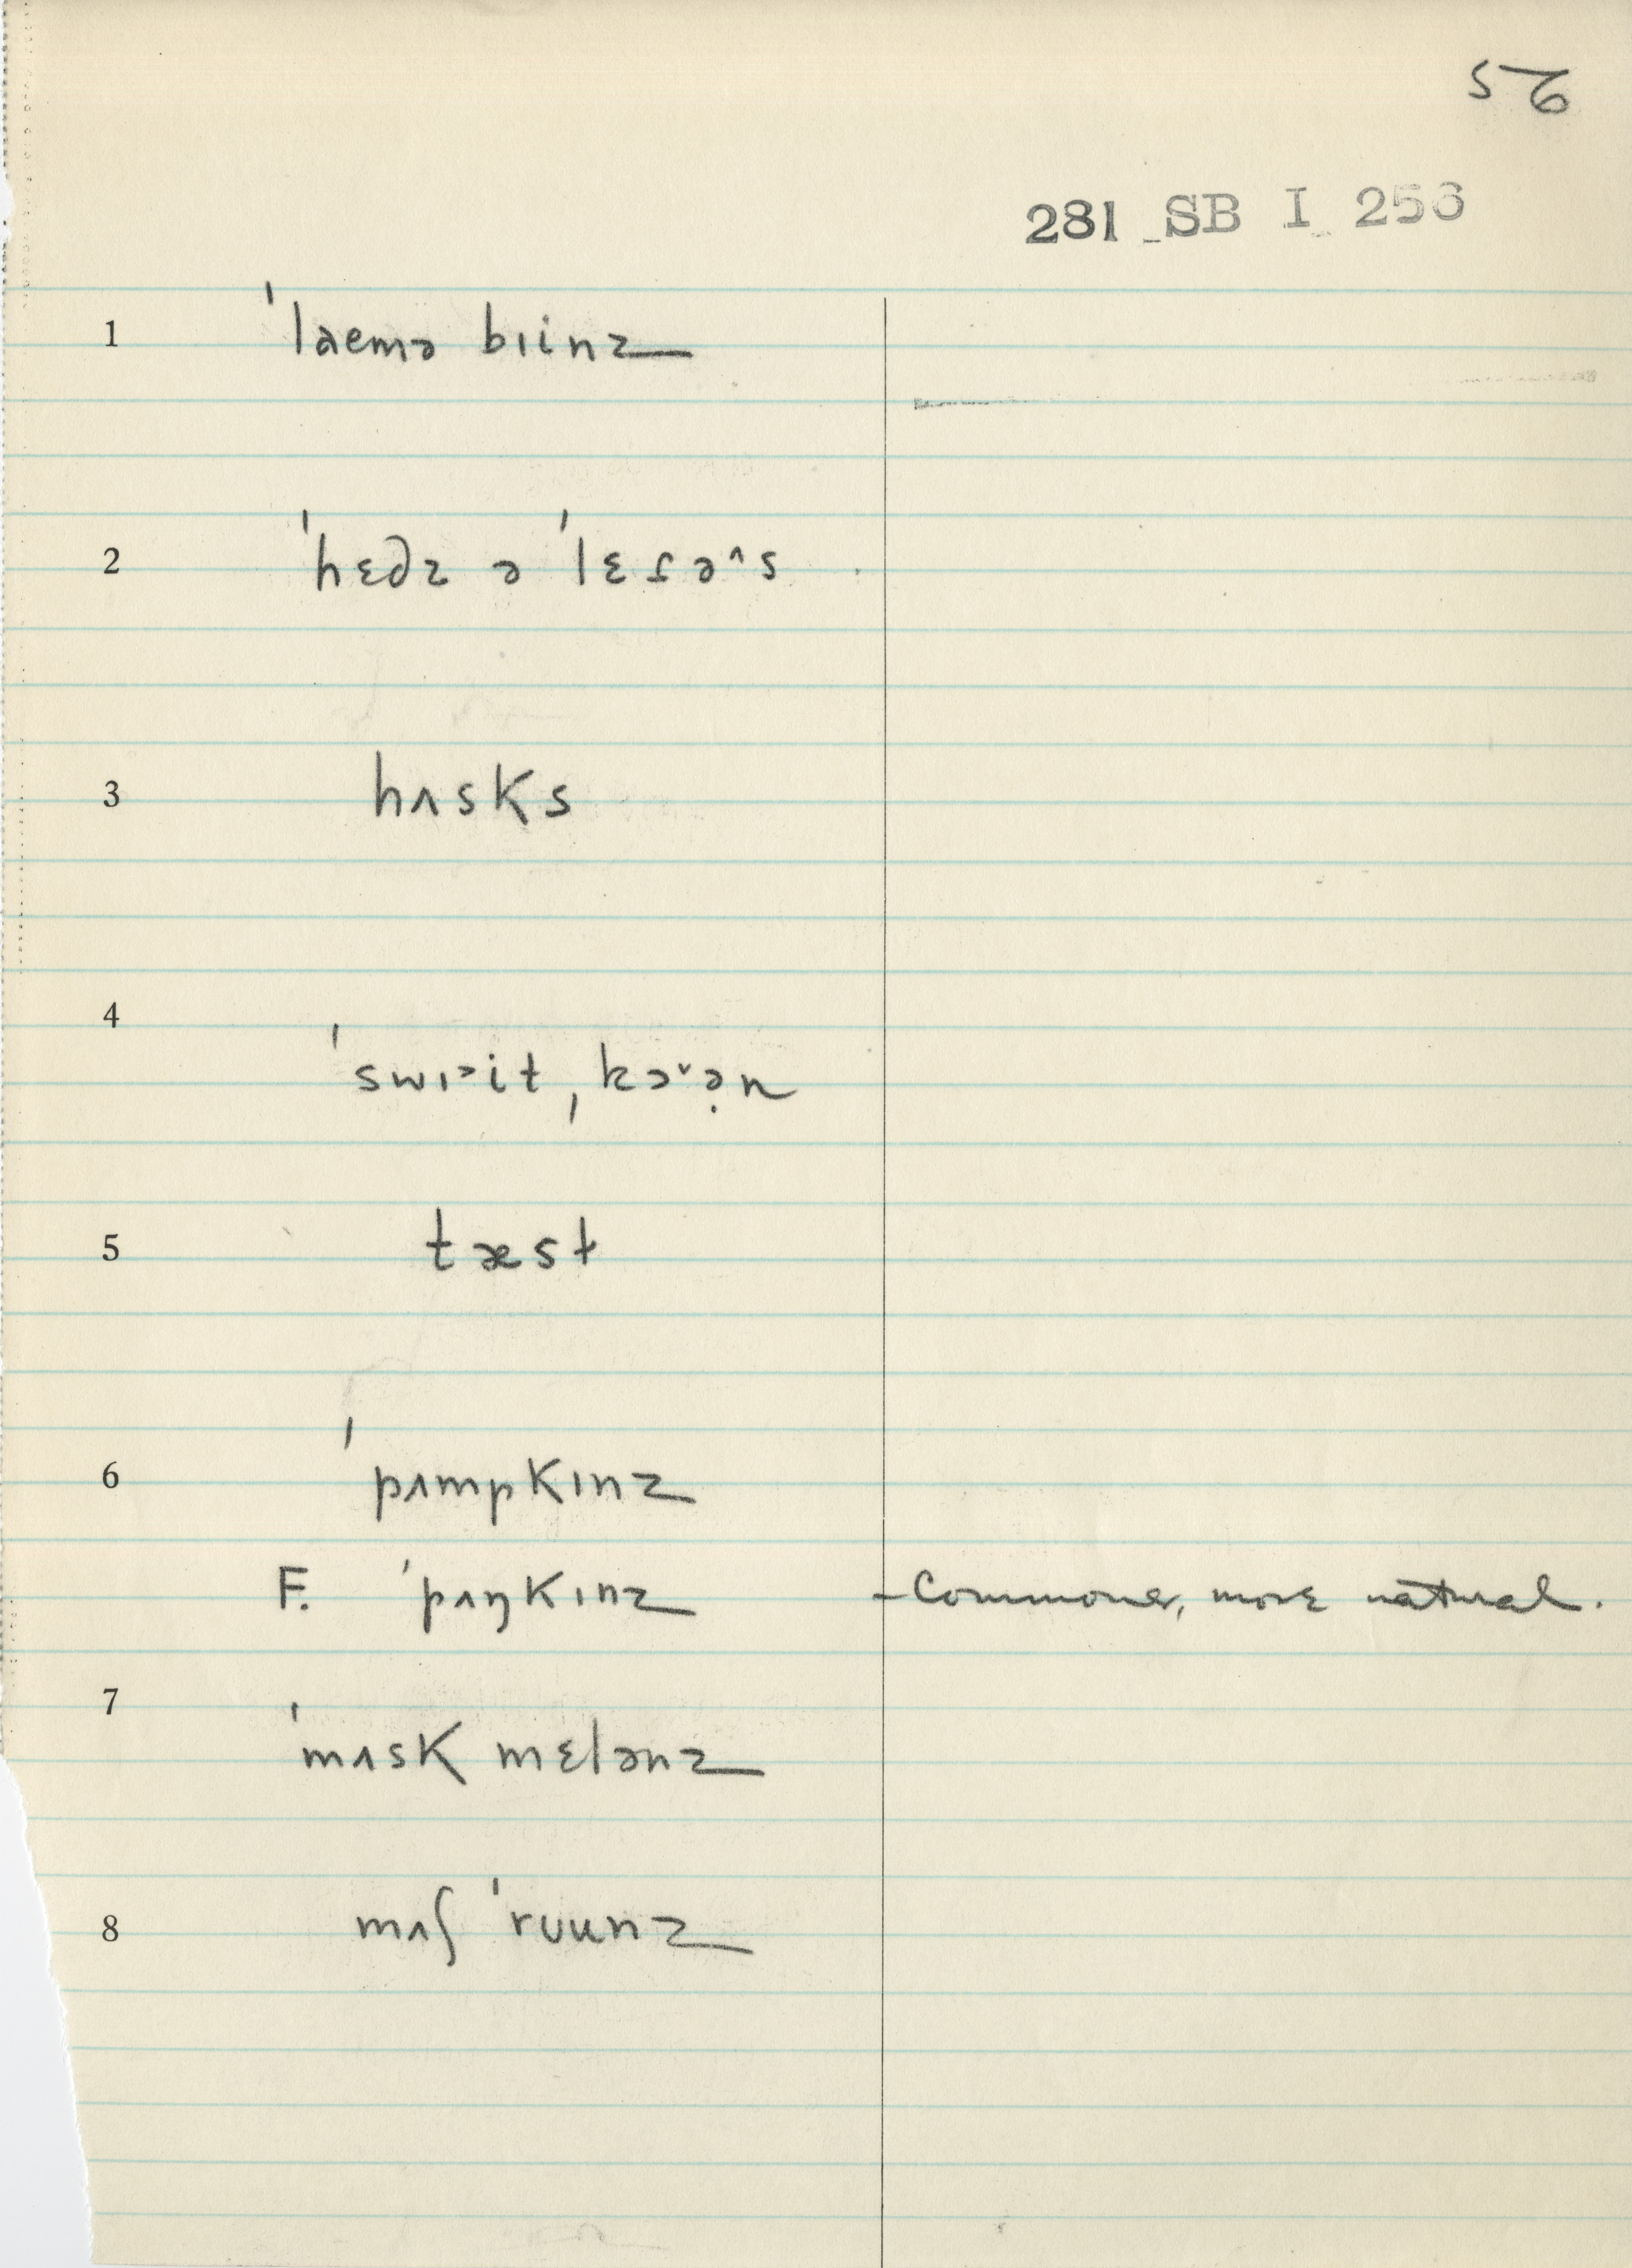 56
281 SB I 256
1 ˈlaemə bɪinz
2 ˈhɛdz ə ˈlɛɾə^s
3 hʌsks
4 ˈswɪ˃it ˌkɔ˅ə̣n
5 tæst
6 ˈpʌmpkɪnz
F. ˈpʌŋkɪnz – Commoner, more natural.
7 ˈmʌsk mɛlənz
8 mʌʃ ˈrʊunz